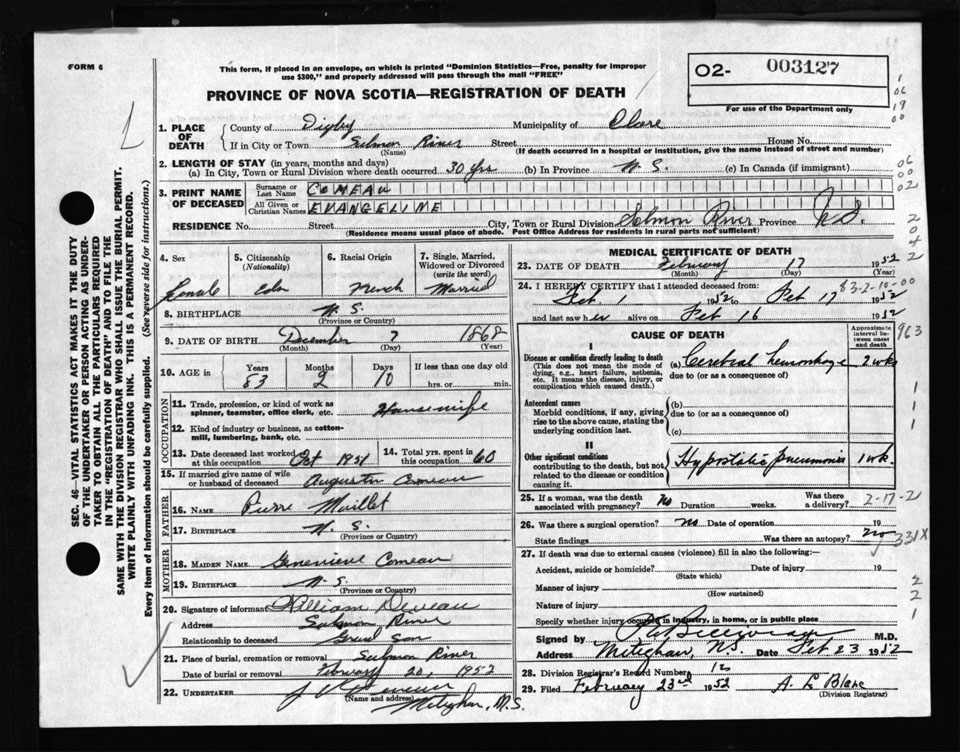 FORM 6
This form, if placed in an envelope, on which is printed "Dominion Statistics—Free, penalty for improper
use $300," and properly addressed will pass through the mail "FREE"
02- 003127
For use of the Department only
PROVINCE OF NOVA SCOTIA—REGISTRATION OF DEATH
1. PLACE OF DEATH
County of Digby Municipality of Clare
If in City or Town Salmon River Street House No.
(Name) (If death occurred in a hospital or institution, give the name instead of street and number)
2. LENGTH OF STAY (in years, months and days)
(a) In City, Town or Rural Division where death occurred 30 yrs (b) In Province N.S. (c) In Canada (if immigrant)
3. PRINT NAME OF DECEASED
Surname or Last Name COMEAU
All Given or Christian Names EVANGELINE
RESIDENCE No. Street City, Town or Rural Division Salmon River Province N.S.
(Residence means usual place of abode. Post Office Address for residents in rural parts not sufficient)
4. Sex
5. Citizenship (Nationality)
6. Racial Origin
7. Single, Married, Widowed or Divorced (write the word)
Female Cdn French Married
8. BIRTHPLACE N.S.
(Province or Country)
9. DATE OF BIRTH December 7 1868
(Month) (Day) (Year)
10. AGE
Years Months Days If less than one day old
83 2 10 hrs. or min.
OCCUPATION
11. Trade, profession, or kind of work as spinner, teamster, office clerk, etc. Housewife
12. Kind of industry or business, as cotton-mill, lumbering, bank, etc.
13. Date deceased last worked at this occupation Oct 1951
14. Total yrs. spent in this occupation 60
15. If married give name of wife or husband of deceased Augustin Comeau
FATHER
16. Name Pierre Maillet
17. Birthplace N.S.
(Province or Country)
MOTHER
18. Maiden Name Genevieve Comeau
19. Birthplace N.S.
(Province or Country)
20. Signature of informant William Deveau
Address Salmon River
Relationship to deceased Grand Son
21. Place of burial, cremation or removal Salmon River
Date of burial or removal February 20, 1952
22. UNDERTAKER
(Name and address)
Meteghan, N.S.
MEDICAL CERTIFICATE OF DEATH
23. DATE OF DEATH February 17 1952
(Month) (Day) (Year)
83-2-10-00
24. I HEREBY CERTIFY that I attended deceased from:
Feb. 1 1952 to Feb 17 1952
and last saw her alive on Feb 16 1952
CAUSE OF DEATH
Approximate interval between onset and death
I
Disease or condition directly leading to death (a) Cerebral hemorrhage 2 wks
(This does not mean the mode of dying, e.g., heart failure, asthenia, etc. It means the disease, injury, or complication which caused death.)
due to (or as a consequence of)
Antecedent causes
Morbid conditions, if any, giving rise to the above cause, stating the underlying condition last.
(b)
due to (or as a consequence of)
(c)
II
Other significant conditions
contributing to the death, but not related to the disease or condition causing it.
Hypostatic pneumonia 1 wk.
25. If a woman, was the death associated with pregnancy? No Duration weeks. Was there a delivery?
2-17-2
26. Was there a surgical operation? No Date of operation 19
State findings Was there an autopsy? No
331X
27. If death was due to external causes (violence) fill in also the following:—
Accident, suicide or homicide? Date of injury 19
(State which)
Manner of injury
(How sustained)
Nature of injury
Specify whether injury occurs in industry, in home, or in public place
Signed by M.D.
Address Meteghan, N.S. Date Feb 23 1952
28. Division Registrar's Record Number 12
29. Filed February 23rd 1952
(Division Registrar)
SEC. 46—VITAL STATISTICS ACT MAKES IT THE DUTY
OF THE UNDERTAKER OR PERSON ACTING AS UNDER-
TAKER TO OBTAIN ALL THE PARTICULARS REQUIRED
IN THE "REGISTRATION OF DEATH" AND TO FILE THE
SAME WITH THE DIVISION REGISTRAR WHO SHALL ISSUE THE BURIAL PERMIT.
WRITE PLAINLY WITH UNFADING INK. THIS IS A PERMANENT RECORD.
Every item of information should be carefully supplied. (See reverse side for instructions.)